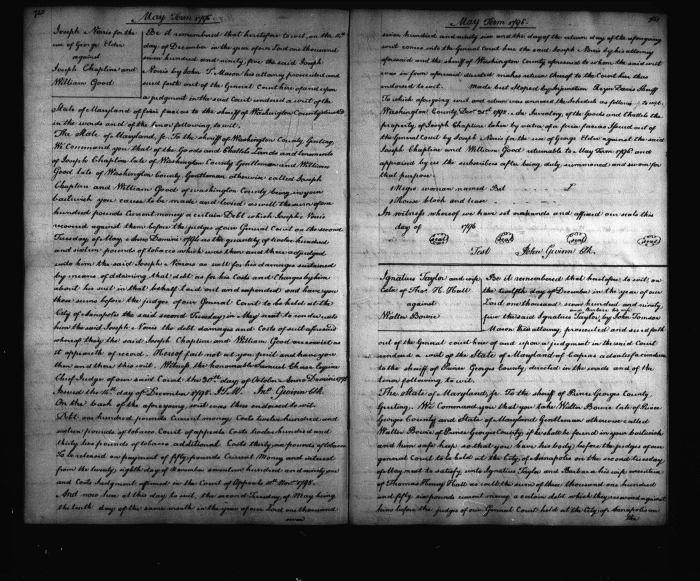 May Term 1796.
Joseph Norris for the
use of George Elder
against
Joseph Chapline and
William Good
Be it remembered that heretofore to wit, on the
day of December in the year of our Lord one thousand
seven hundred and ninety five the said Joseph
Norris by John T. Mason his attorney prosecuted and
sued forth out of the General Court here of and upon
a judgment in the said Court rendered a writ of the
State of Maryland of fieri facias to the sheriff of Washington County directed
in the words and of the form following to wit.
The State of Maryland, ss. To the sheriff of Washington County Greeting,
We Command you that of the Goods and Chattels Lands and tenements
of Joseph Chapline late of Washington County Gentleman and William
Good late of Washington County Gentleman otherwise called Joseph
Chapline and William Good of Washington County being in your
bailiwick you cause to be made and levied as well the sum of one
hundred pounds Current money a certain Debt which Joseph Norris
recovered against them before the judges of our General Court on the second
Tuesday of May, Anno Domini 1792 as the quantity of twelve hundred
and sixteen pounds of tobacco which was then and there adjudged
unto him the said Joseph Norris as well for his damages sustained
by means of detaining that debt as for his Costs and Charges by him
about his suit in that behalf laid out and expended and have you
those sums before the judges of our General Court to be held at the
City of Annapolis the said second Tuesday in May next to render unto
him the said Joseph Norris the debt damages and Costs of suit aforesaid
whereof they the said Joseph Chapline and William Good are convict as
it appears of record. Hereof fail not at your peril and have you
then and there this writ. Witness the honorable Samuel Chase Esquire
Chief Judge of our said Court the day of October Anno Domini 1795
Issued the day of December 1795. Jno. Gwinn Clk.
On the back of the aforegoing writ was thus endorsed to wit.
Debt one hundred pounds Current money. Costs twelve hundred and
sixteen pounds of tobacco Court of appeals Costs hundred and
thirty pounds of tobacco additional Costs thirty six pounds of tobacco
To be released on payment of fifty pounds Current Money and interest
from the twenty eighth day of November seventeen hundred and ninety one
and Costs Judgment affirmed in the Court of Appeals Novr. 1795.
And now here at this day to wit the second Tuesday of May being
the tenth day of the same month in the year of our Lord one thousand
seven
May Term 1796.
seven hundred and ninety six and the day of the return day of the aforegoing
writ comes into the General Court here the said Joseph Norris by his attorney
aforesaid and the sheriff of Washington County aforesaid to whom the said writ
was in form aforesaid directed makes return thereof to the Court here thus
endorsed to wit. Made but Stopped by Injunction Rezin Davis Shff
To which aforegoing writ and return was annexed the Schedule as follows to wit.
Washington County Decr. 21st. 1795. An Inventory of the Goods and Chattels the
property of Joseph Chapline taken by virtue of a fieri facias issued out of
the General Court by Joseph Norris for the use of George Elder against the said
Joseph Chapline and William Good returnable to May Term 1796 and
appraised by us the subscribers after being duly summoned and sworn for
that purpose
1 Negro woman named Bet
1 House block and lease
In witness whereof we have set our hands and affixed our seals this
day of 1796
Seal Seal Seal Seal
Test John Gwinn Clk.
Ignatius Taylor and wife
of Thos. H. Hall
against
Walter Bowie
Be it remembered that heretofore to wit, on
the twelfth day of December in the year of our
Lord one thousand seven hundred and ninety
and Barbara his wife
five the said Ignatius Taylor, by John Tomson
Mason their attorney, prosecuted and sued forth
out of the General court here of and upon a judgment in the said Court
rendered a writ of the State of Maryland of capias ad satisfaciendum
to the sheriff of Prince Georges County, directed in the words and of the
form following to wit.
The State of Maryland, ss. To the sheriff of Prince Georges County
Greeting. We Command you that you take Walter Bowie late of Prince
Georges County and State of Maryland Gentleman otherwise called
Walter Bowie of Prince Georges County if he shall be found in your bailiwick
and him safe keep so that you have his body before the judges of our
general Court to be held at the City of Annapolis on the second tuesday
of May next to satisfy unto Ignatius Taylor and Barbara his wife executrix
of Thomas Henry Hall as well the sum of three thousand one hundred
and fifty six pounds current money a certain debt which they recovered against
him before the judges of our General Court held at the City of Annapolis on
the